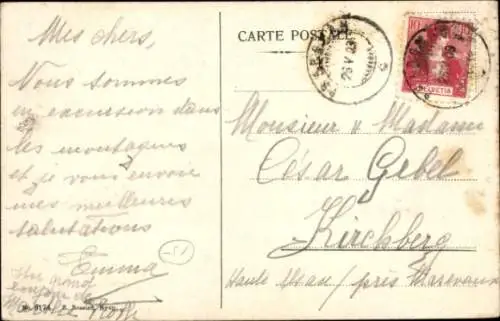 CARTE POSTALE
Mes chers,
Nous sommes
en excursion dans
les montagnes
et je vous envoie
mes meilleures
salutations
Emma
Un grand
Monsieur & Madame
César Gebel
Kirchberg
Haute Alsace / près Massevaux
10
HELVETIA
26 V 09